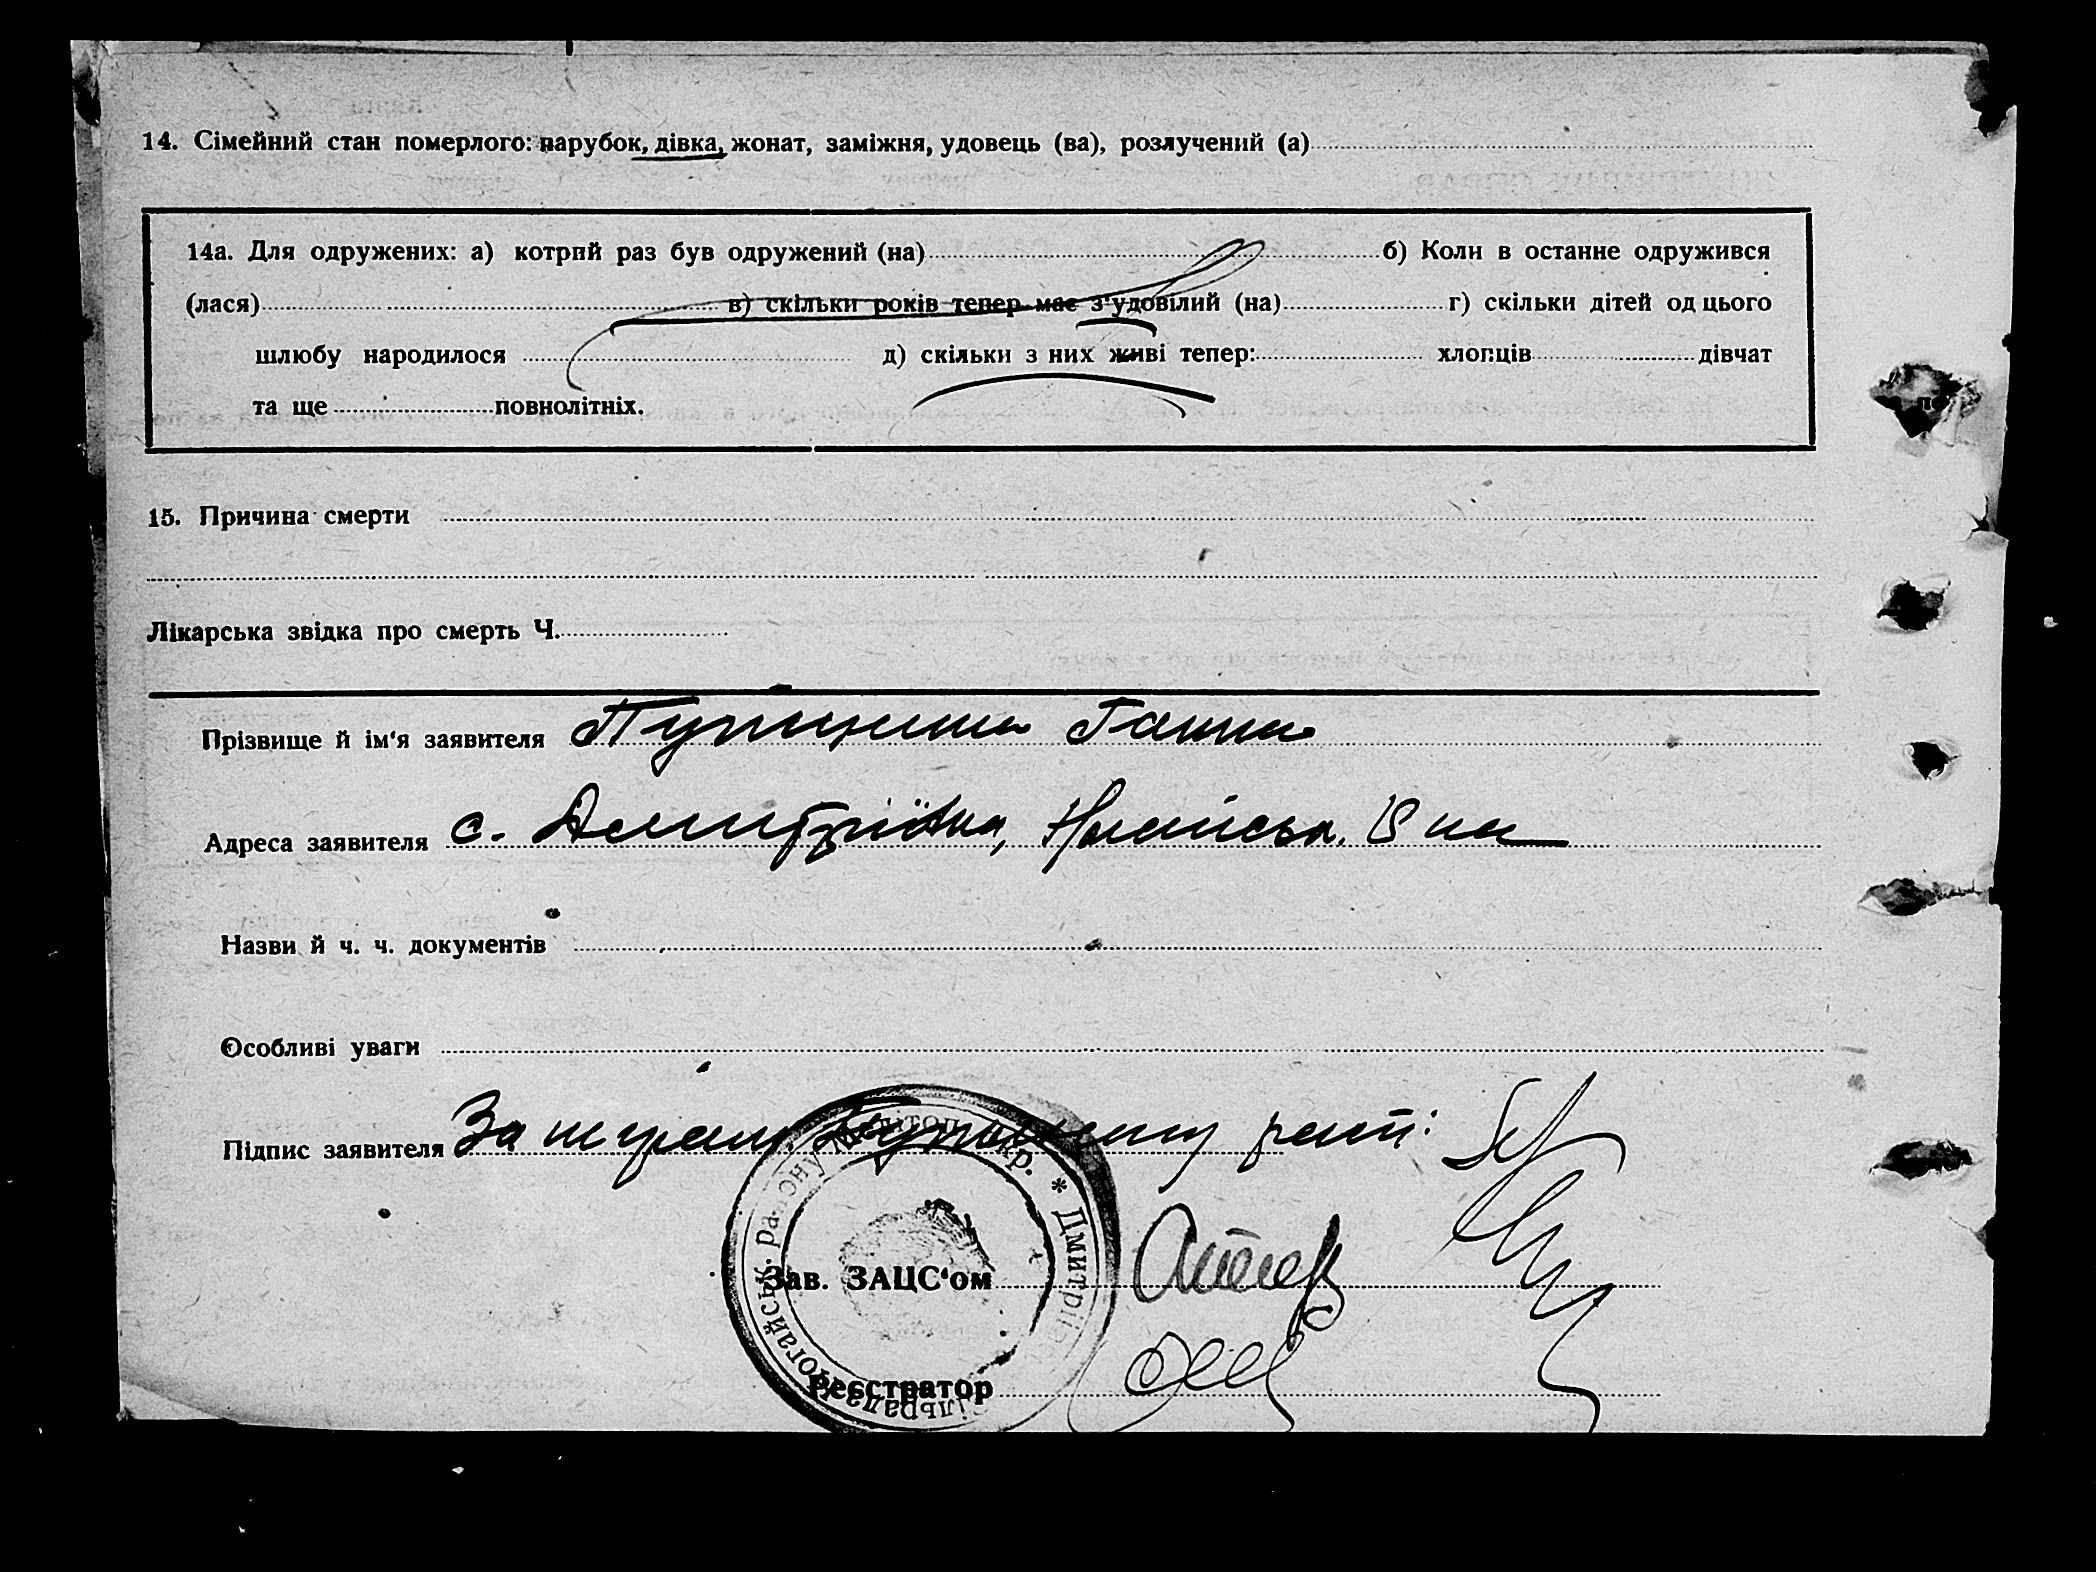 14. Сімейний стан померлого: парубок, дівка, жонат, заміжня, удовець (ва), розлучений (а)
14а. Для одружених: а) котрий раз був одружений (на) б) Коли в останне одружився
(лася) в) скільки років тепер має з'удовілий (на) г) скільки дітей од цього
шлюбу народилося д) скільки з них живі тепер: хлопців дівчат
та ще повнолітніх.
15. Причина смерти
Лікарська звідка про смерть Ч.
Прізвище й ім'я заявителя Ганна
Адреса заявителя с. Дмитріївка,
Назви й ч. ч. документів
Особливі уваги
Підпис заявителя За
Зав. ЗАЦС'ом
Реєстратор